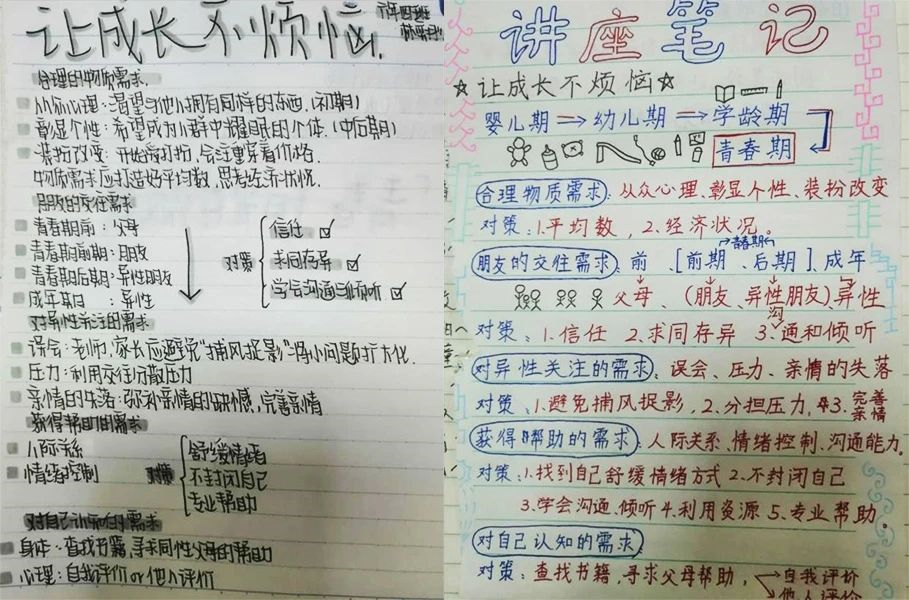 让成长不烦恼.
合理的物质需求.
从众心理:渴望与他人拥有同样的东西.(初期)
彰显个性:希望成为人群中耀眼的个体.(中后期)
装扮改变:开始爱打扮,会注重穿着价格.
物质需求应打造好平均数,思考经济状况.
朋友的交往需求
青春期前:父母
青春期前期:朋友
青春期后期:异性朋友
成年期:异性
对策
信任 ☑
求同存异 ☑
学会沟通与倾听 ☑
对异性关注的需求
误会:老师,家长应避免“捕风捉影”将小问题扩大化.
压力:利用交往分散压力
亲情的失落:弥补亲情的缺憾,完善亲情
获得帮助的需求
人际关系
情绪控制
对策
舒缓情绪
不封闭自己
专业帮助
对自己认知的需求
身体:查找书籍,寻求同性父母的帮助
心理:自我评价or他人评价
讲座笔记
☆让成长不烦恼☆
婴儿期→幼儿期→学龄期
青春期
合理物质需求:从众心理、彰显个性、装扮改变
对策:1.平均数,2.经济状况。
青春期
朋友的交往需求:前、[前期、后期]、成年
父母、(朋友、异性朋友)异性
对策:1.信任 2.求同存异 3.沟通和倾听
对异性关注的需求:误会、压力、亲情的失落
对策:1.避免捕风捉影,2.分担压力,3.完善亲情
获得帮助的需求:人际关系、情绪控制、沟通能力。
对策:1.找到自己舒缓情绪方式 2.不封闭自己
3.学会沟通、倾听 4.利用资源 5.专业帮助。
对自己认知的需求:
对策:查找书籍,寻求父母帮助,
自我评价
他人评价